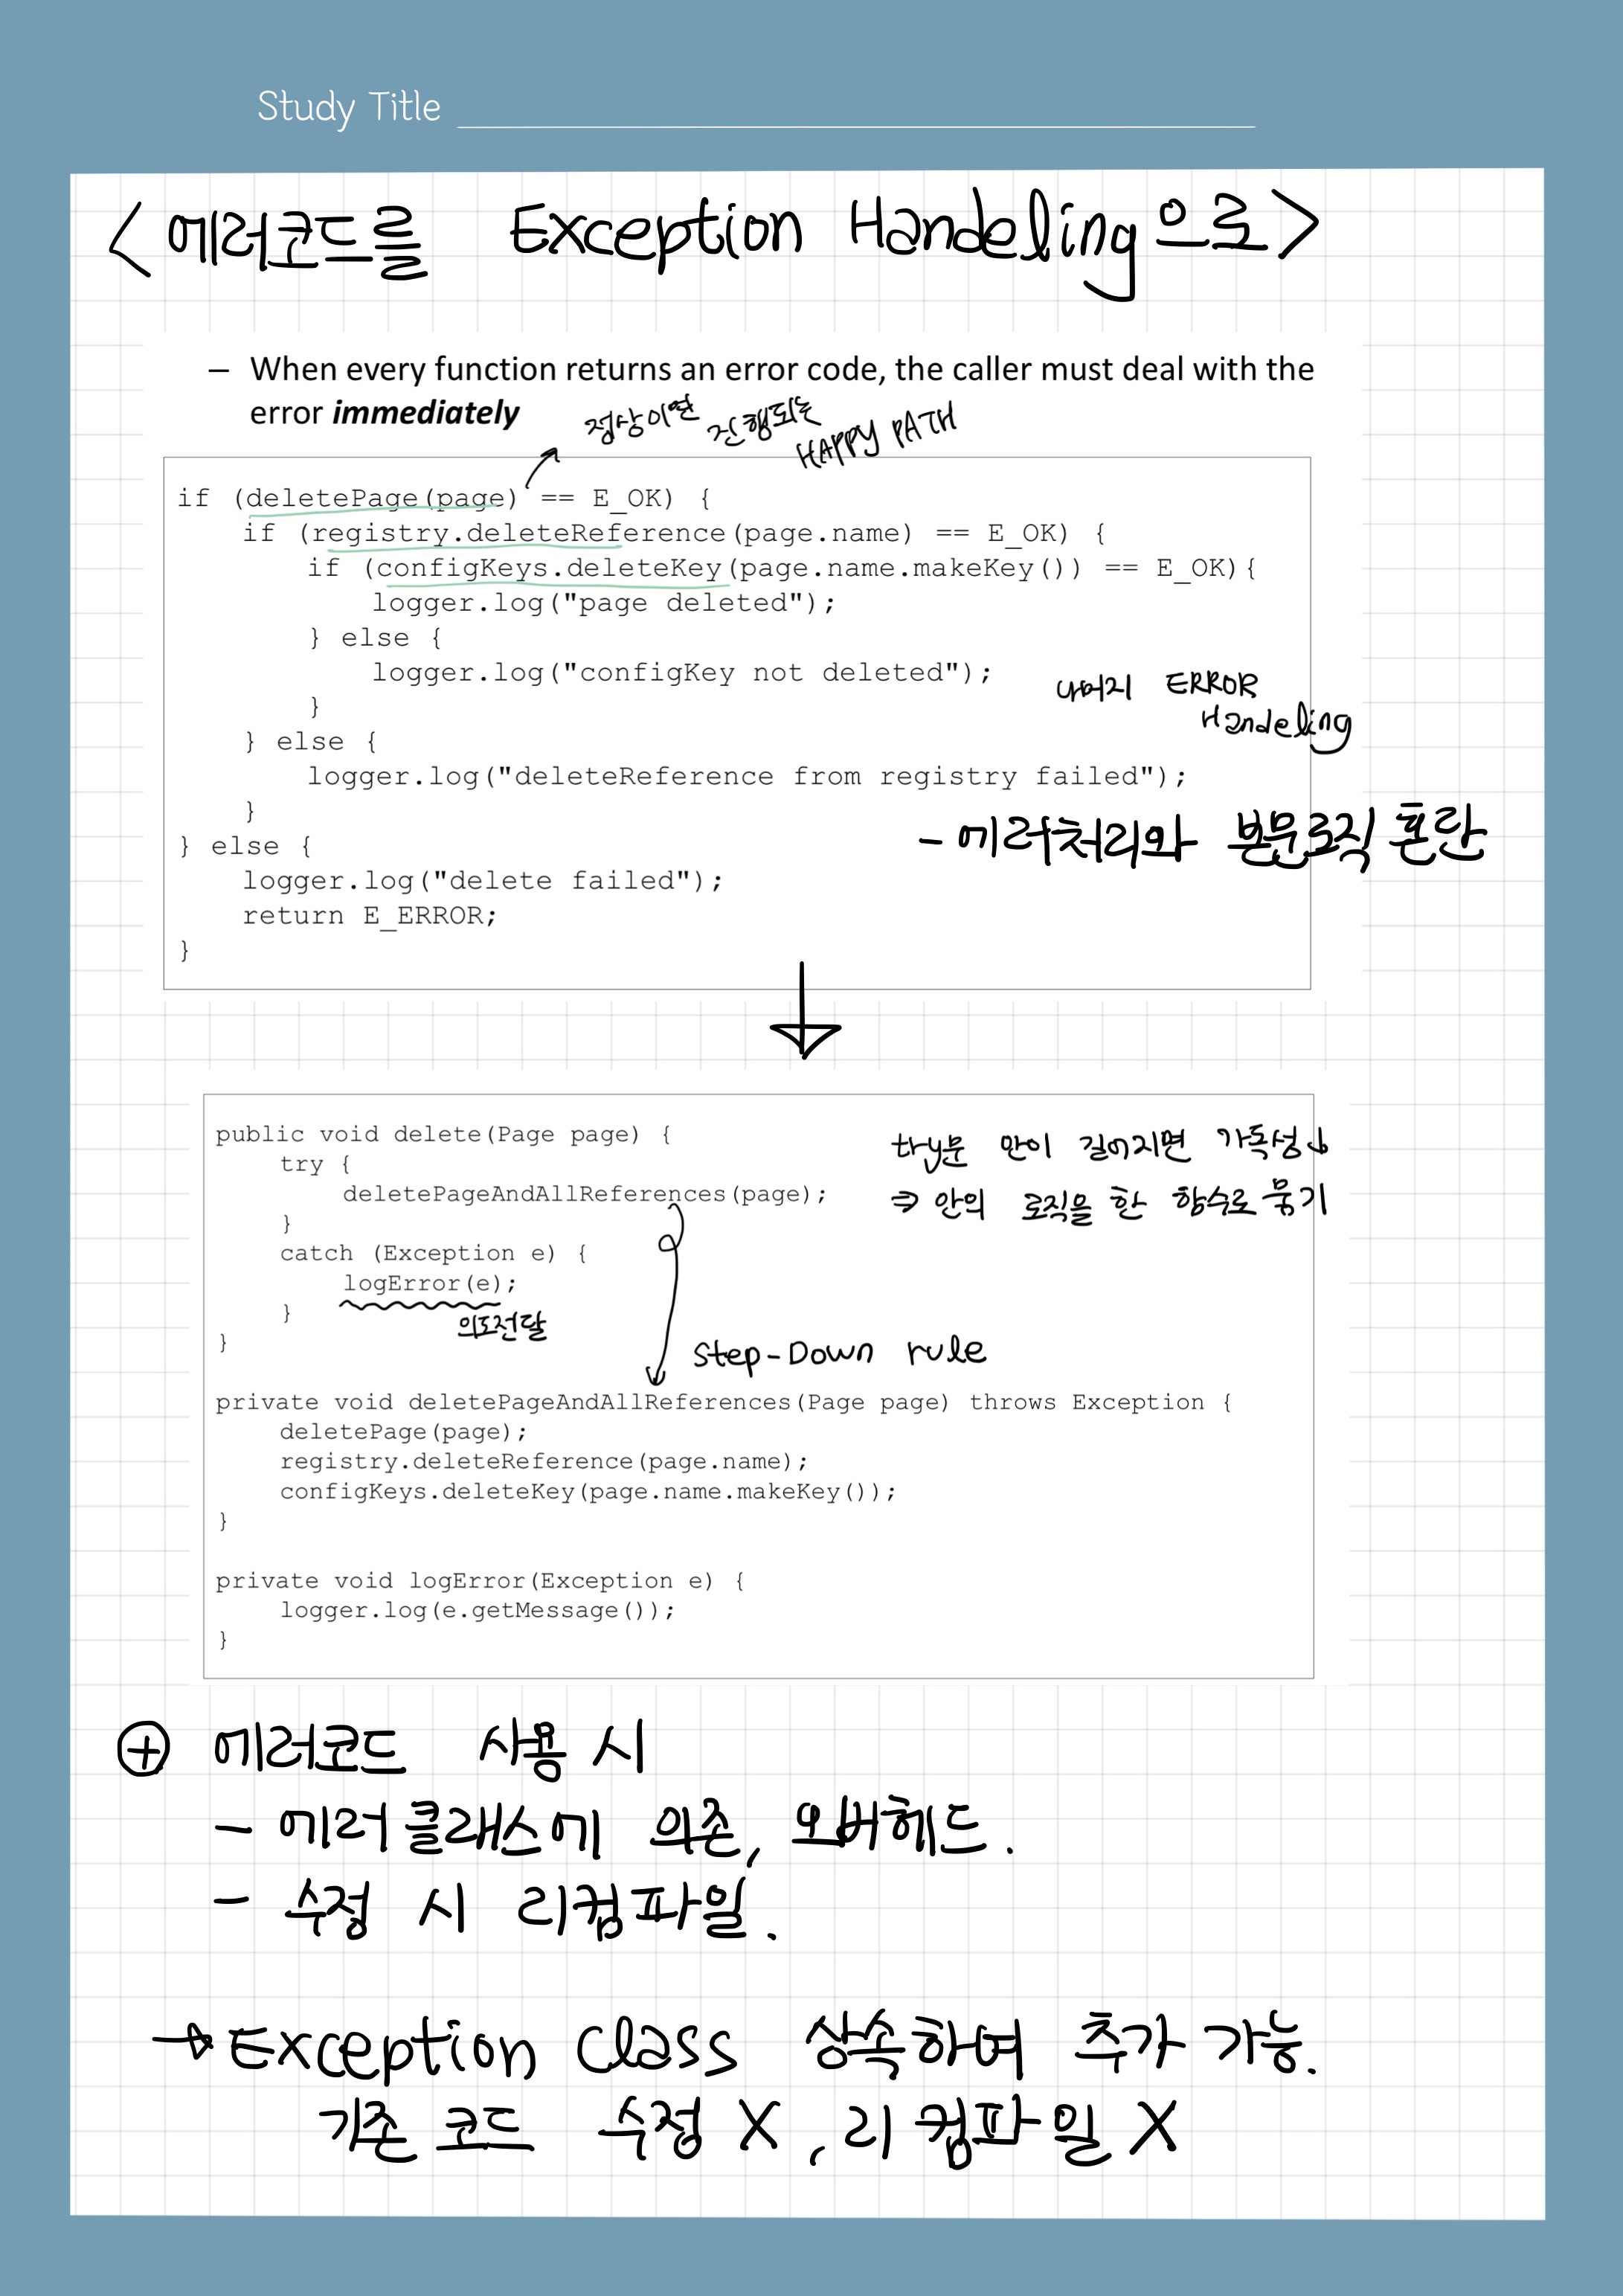 Study Title
<에러코드를 Exception Handeling으로>
– When every function returns an error code, the caller must deal with the
error immediately
정상이면 진행되는
HAPPY PATH
if (deletePage(page) == E_OK) {
if (registry.deleteReference(page.name) == E_OK) {
if (configKeys.deleteKey(page.name.makeKey()) == E_OK){
logger.log("page deleted");
} else {
logger.log("configKey not deleted");
}
나머지 ERROR
Handeling
} else {
logger.log("deleteReference from registry failed");
}
- 에러처리와 본문로직 혼란
} else {
logger.log("delete failed");
return E_ERROR;
}
public void delete(Page page) {
try {
deletePageAndAllReferences(page);
}
catch (Exception e) {
logError(e);
}
}
try문 안이 길어지면 가독성↓
⇒ 안의 로직을 한 함수로 묶기
의도전달
Step-Down rule
private void deletePageAndAllReferences(Page page) throws Exception {
deletePage(page);
registry.deleteReference(page.name);
configKeys.deleteKey(page.name.makeKey());
}
private void logError(Exception e) {
logger.log(e.getMessage());
}
⊕ 에러코드 사용 시
- 에러 클래스에 의존, 오버헤드.
- 수정 시 리컴파일.
→ Exception Class 상속하여 추가 가능.
기존 코드 수정 X, 리컴파일 X